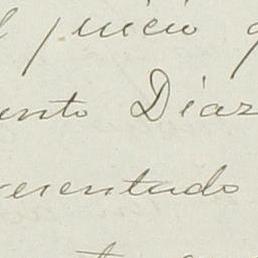 l juicio q
unto Diaz
resentado